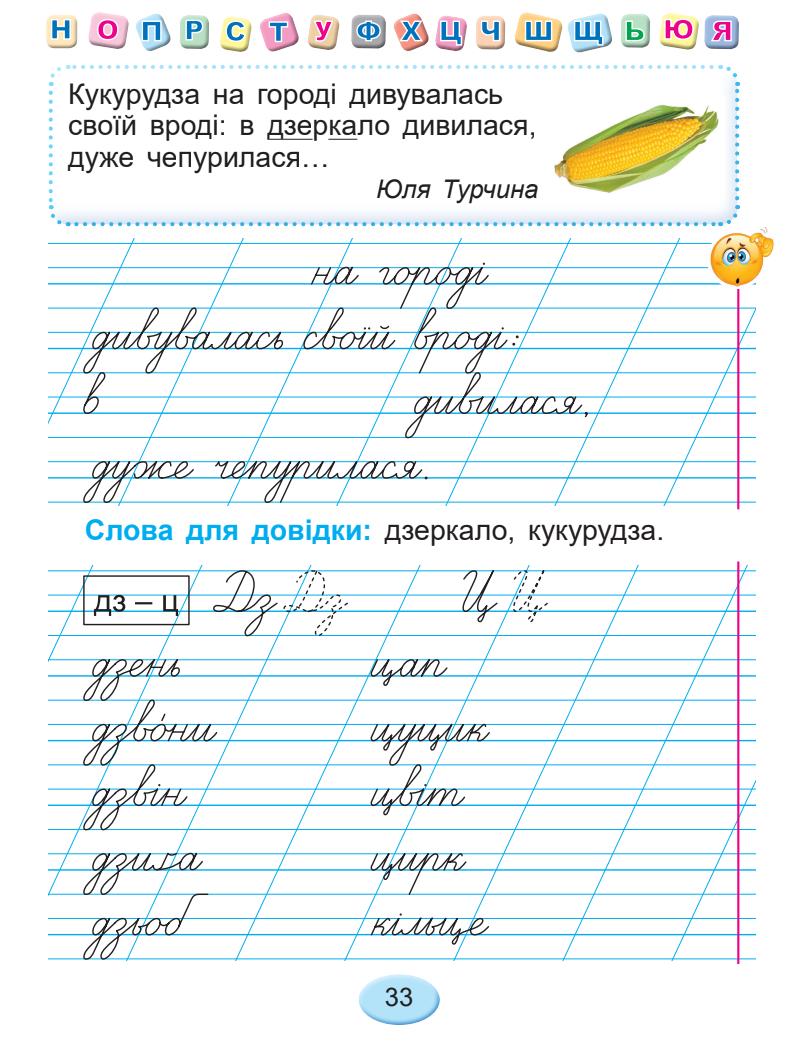 Н О П Р С Т У Ф Х Ц Ч Ш Щ Ь Ю Я
Кукурудза на городі дивувалась
своїй вроді: в дзеркало дивилася,
дуже чепурилася…
Юля Турчина
на городі
дивувалась своїй вроді:
в дивилася,
дуже чепурилася.
Слова для довідки: дзеркало, кукурудза.
дз – ц Дз Дз Ц Ц
дзень цап
дзво́ни цуцик
дзвін цвіт
дзиґа цирк
дзьоб кільце
33